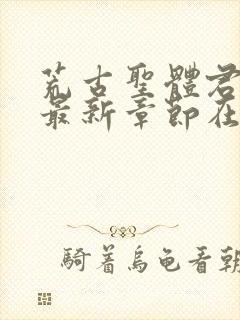 荒古聖體君
最新章節在
騎着烏龜看朝